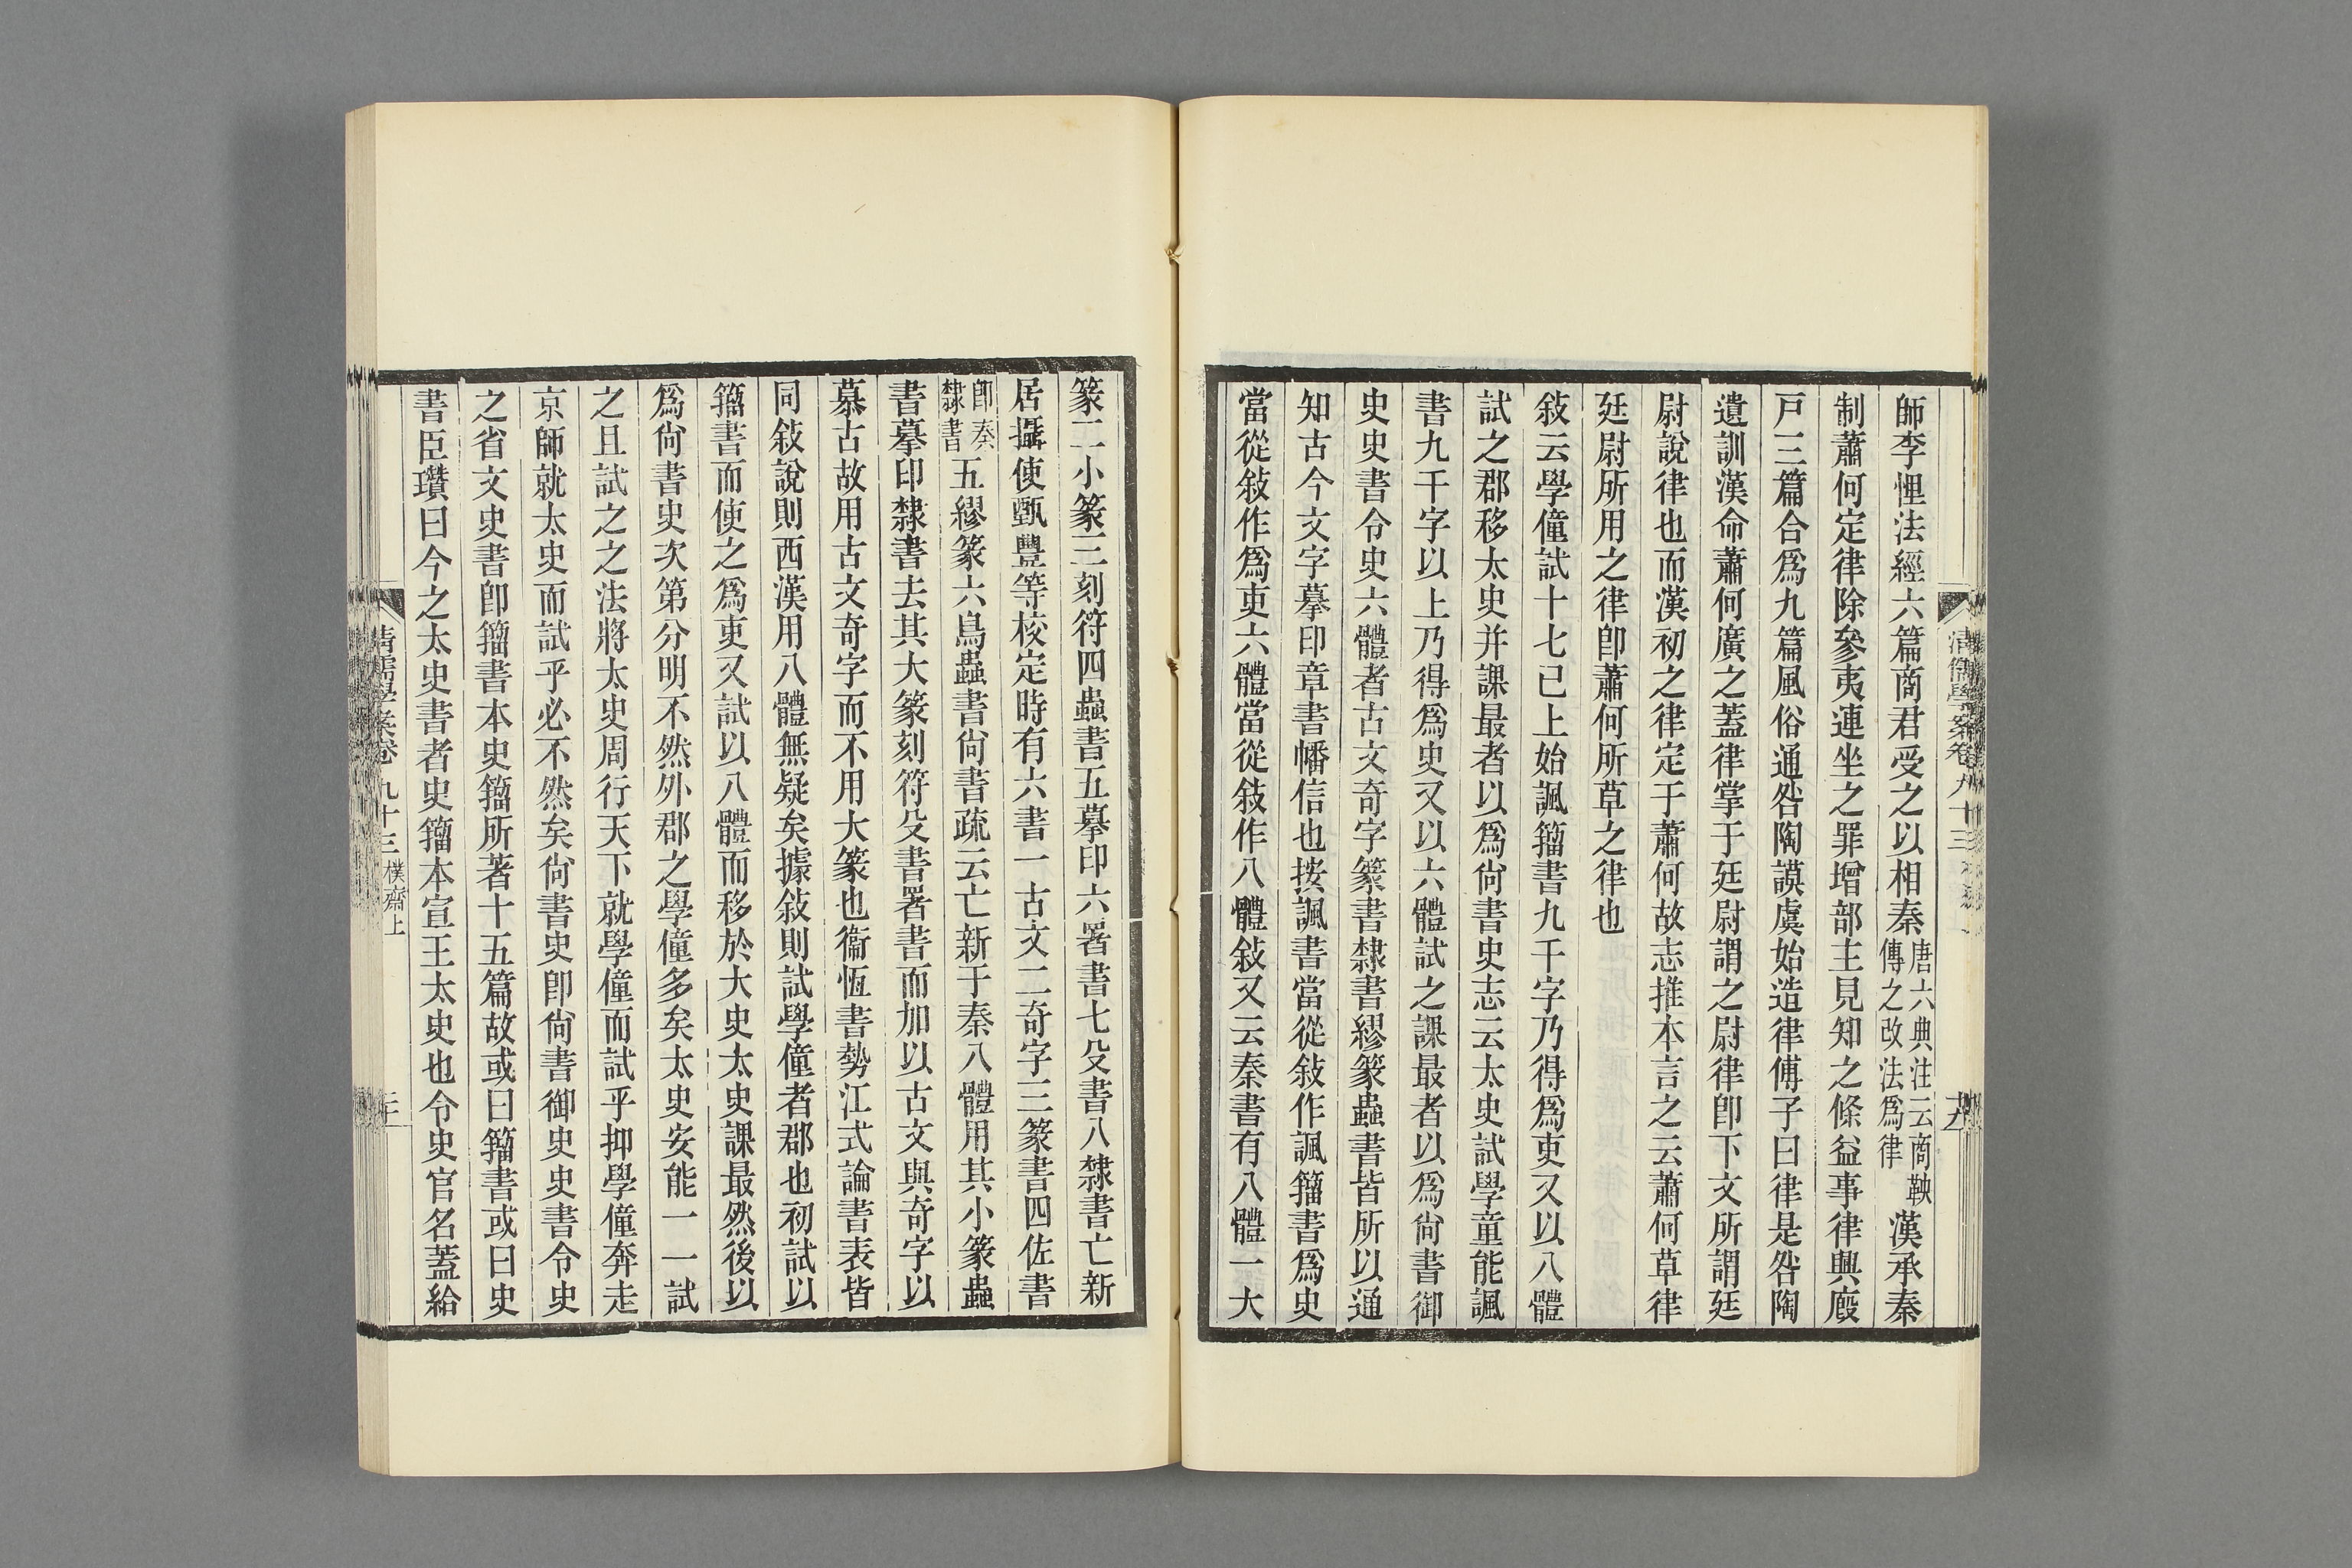 師李悝法經六篇商君受之以相秦唐六典注云商鞅傳之改法爲律漢承秦
制蕭何定律除參夷連坐之罪增部主見知之條益事律興廄
戸三篇合爲九篇風俗通咎陶謨虞始造律傅子曰律是咎陶
遺訓漢命蕭何廣之蓋律掌于廷尉謂之尉律卽下文所謂廷
尉說律也而漢初之律定于蕭何故志推本言之云蕭何草律
廷尉所用之律卽蕭何所草之律也
敍云學僮試十七已上始諷籀書九千字乃得爲吏又以八體
試之郡移太史并課最者以爲尙書史志云太史試學童能諷
書九千字以上乃得爲史又以六體試之課最者以爲尙書御
史史書令史六體者古文奇字篆書隸書繆篆蟲書皆所以通
知古今文字摹印章書幡信也按諷書當從敍作諷籀書爲史
當從敍作爲吏六體當從敍作八體敍又云秦書有八體一大
清儒學案卷九十三
篆二小篆三刻符四蟲書五摹印六署書七殳書八隸書亡新
居攝使甄豐等校定時有六書一古文二奇字三篆書四佐書
卽秦隸書五繆篆六鳥蟲書尙書疏云亡新于秦八體用其小篆蟲
書摹印隸書去其大篆刻符殳書署書而加以古文與奇字以
慕古故用古文奇字而不用大篆也衞恆書勢江式論書表皆
同敍說則西漢用八體無疑矣據敍則試學僮者郡也初試以
籀書而使之爲吏又試以八體而移於大史太史課最然後以
爲尙書史次第分明不然外郡之學僮多矣太史安能一一試
之且試之之法將太史周行天下就學僮而試乎抑學僮奔走
京師就太史而試乎必不然矣尙書史卽尙書御史史書令史
之省文史書卽籀書本史籀所著十五篇故或曰籀書或曰史
書臣瓚曰今之太史書者史籀本宣王太史也令史官名蓋給
清儒學案卷九十三 樸齋上 二十